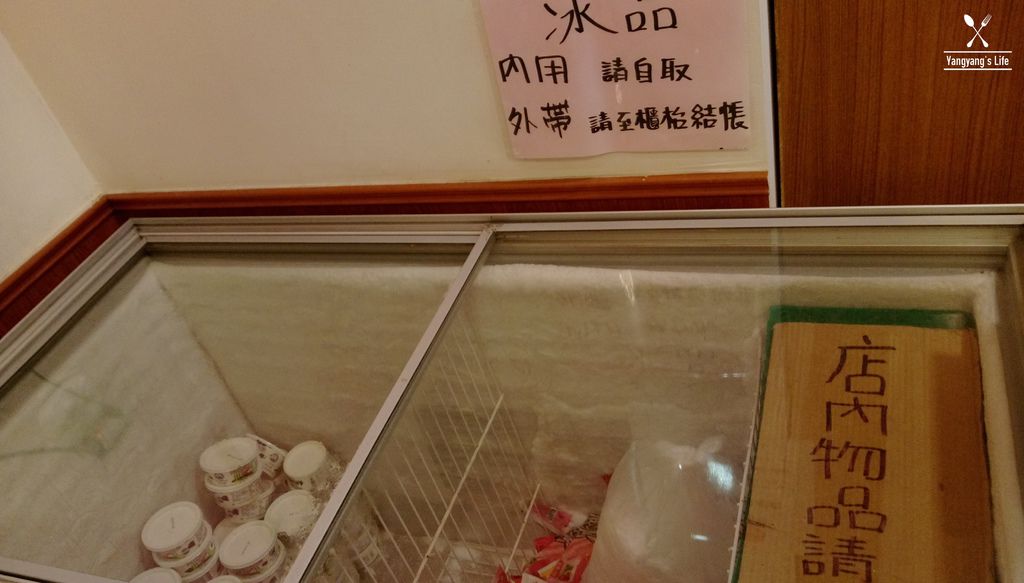 冰品
內用 請自取
外帶 請至櫃枱結帳
店內物品請
Yangyang's Life